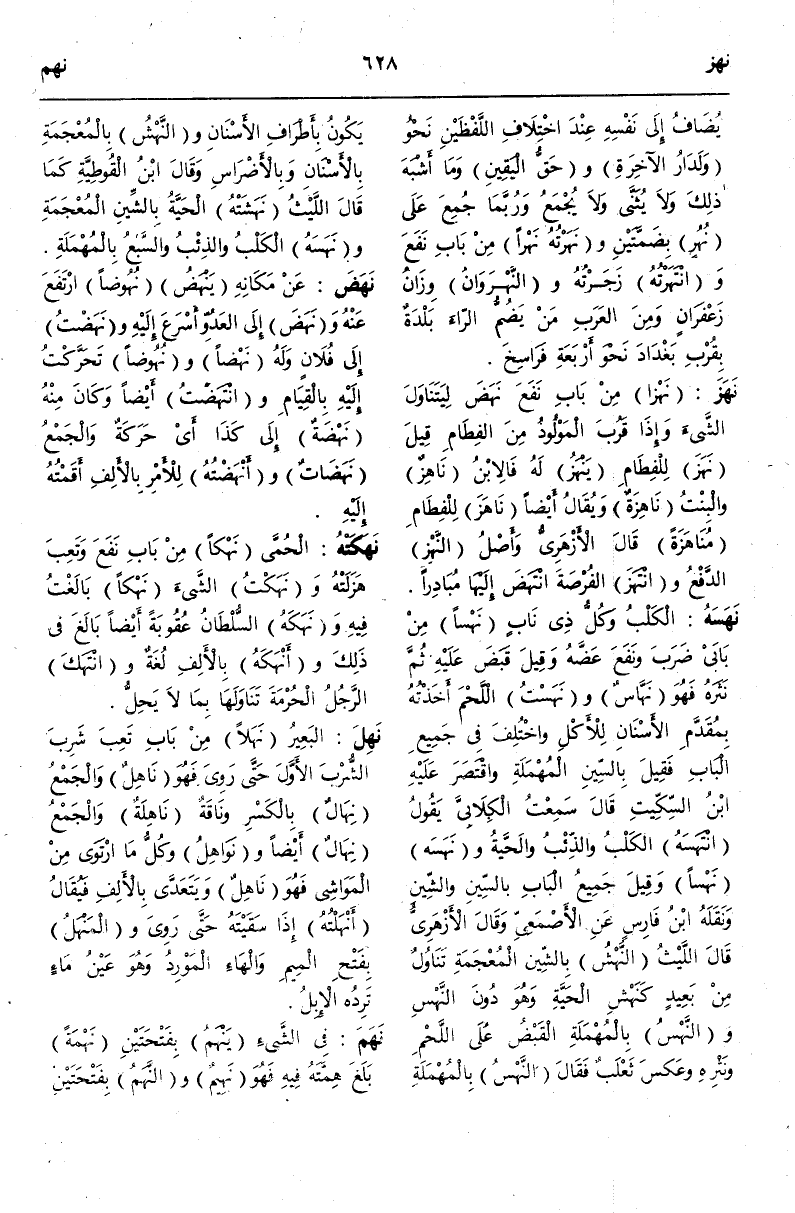 نهز
٦٢٨
نهم
يُضَافُ إِلَى نَفْسِهِ عِنْدَ اخْتِلَافِ اللَّفْظَيْنِ نَحْوُ
( وَلَدَارُ الآخِرَةِ ) و ( حَقُّ الْيَقِينِ ) وَمَا أَشْبَهَ
ذلِكَ وَلاَ يُثَنَّى وَلاَ يُجْمَعُ وَرُبَّمَا جُمِعَ عَلَى
( نُهُرٍ ) بِضَمَّتَيْنِ و ( نَهَرْتُهُ نَهْراً ) مِنْ بَابِ نَفَعَ
وَ ( انْتَهَرْتُهُ ) زَجَرْتُهُ و ( النَّهْرَوَانُ ) وِزَانُ
زَعْفَرانٍ وَمِنَ العَرَبِ مَنْ يَضُمُّ الرَّاءَ بَلْدَةٌ
بِقُرْبِ بَغْدَادَ نَحْوَ أَرْبَعَةِ فَرَاسِخَ .
نَهَزَ : ( نَهْزا ) مِنْ بَابِ نَفَعَ نَهَضَ لِيَتَنَاوَلَ
الشَّىءَ وَإِذَا قَرُبَ الْمَوْلُودُ مِنَ الفِطَامِ قِيلَ
( نَهَزَ ) لِلْفِطَامِ ( يَنْهَزُ ) لَهُ فَالاِبْنُ ( نَاهِزٌ )
والْبِنْتُ ( نَاهِزَةٌ ) وَيُقَالُ أَيْضاً ( نَاهَزَ ) لِلْفِطَامِ
( مُنَاهَزَةً ) قَالَ الْأَزْهَرِىُّ وَأَصْلُ ( النَّهْزِ )
الدَّفْعُ و ( انْتَهَزَ ) الفُرْصَةَ انْتَهَضَ إِلَيْهَا مُبَادِراً .
نَهَسَهُ : الْكَلْبُ وَكُلُّ ذِى نَابٍ ( نَهْساً ) مِنْ
بَابَىْ ضَرَبَ وَنَفَعَ عَضَّهُ وَقِيلَ قَبَضَ عَلَيْهِ ثُمَّ
نَتَرَهُ فَهُوَ ( نَهَّاسٌ ) و ( نَهَسْتُ ) اللَّحْمَ أَخَذْتُهُ
بِمُقَدَّمِ الأَسْنَانِ لِلْأَكْلِ واخْتُلِفَ فِى جَمِيعِ
الْبَابِ فَقِيلَ بِالسِّينِ الْمُهْمَلَةِ واقْتَصَرَ عَلَيْهِ
ابْنُ السِّكِّيتِ قَالَ سَمِعْتُ الْكِلَابِىَّ يَقُولُ
( انْتَهَسَهُ ) الكَلْبُ والذِّئْبُ والْحَيَّةُ و ( نَهَسَه )
( نَهْساً ) وَقِيلَ جَمِيعُ الْبَابِ بالسِّينِ والشِّينِ
وَنَقَلَهُ ابْنُ فَارِسٍ عَنِ الأَصْمَعِىِّ وَقَالَ الْأَزْهَرِىُّ
قَالَ اللَّيْثُ ( النَّهْشُ ) بِالشِّينِ الْمُعْجَمَةِ تَنَاوُلٌ
مِنْ بَعِيدٍ كَنَهْشِ الْحَيَّةِ وَهُوَ دُونَ النَّهْسِ
وَ ( النَّهْسُ ) بِالْمُهْمَلَةِ الْقَبْضُ عَلَى اللَّحْمِ
ونَتْرِهِ وعَكَسَ ثَعْلَبٌ فَقَالَ ( النَّهْسُ ) بِالْمُهْمَلَةِ
يَكُونُ بِأَطْرَافِ الأَسْنَانِ و ( النَّهْشُ ) بِالْمُعْجَمَةِ
بِالْأَسْنَانِ وَبِالْأَضْرَاسِ وَقَالَ ابْنُ الْقُوطِيَّةِ كَمَا
قَالَ اللَّيْثُ ( نَهَشَتْهُ ) الْحَيَّةُ بِالشِّينِ الْمُعْجَمَةِ
و ( نَهَسَهُ ) الْكَلْبُ والذِئْبُ والسَّبُعُ بِالْمُهْمَلَةِ .
نَهَضَ : عَنْ مَكَانِهِ ( يَنْهَضُ ) ( نُهُوضاً ) ارْتَفَعَ
عَنْهُ وَ ( نَهَضَ ) إِلَى العَدُوِّ أَسْرَعَ إِلَيْهِ و ( نَهَضْتُ )
إِلَى فُلَانٍ وَلَهُ ( نَهْضاً ) و ( نُهُوضاً ) تَحَرَّكْتُ
إِلَيْهِ بِالْقِيَامِ و ( انْتَهَضْتُ ) أَيْضاً وَكَانَ مِنْهُ
( نَهْضَةٌ ) إِلَى كَذَا أَىْ حَرَكَةٌ وَالْجَمْعُ
( نَهَضَاتٌ ) و ( أَنْهَضْتُهُ ) لِلْأَمْرِ بِالأَلِفِ أَقَمْتُهُ
إِلَيْهِ .
نَهَكَتْهُ : الْحُمَّى ( نَهْكاً ) مِنْ بَابِ نَفَعَ وَتَعِبَ
هَزَلَتْهُ وَ ( نَهَكْتُ ) الشَّىءَ ( نَهْكاً ) بَالَغْتُ
فِيهِ وَ ( نَهَكَهُ ) السُّلْطَانُ عُقُوبَةً أَيْضاً بَالَغَ فى
ذلِكَ و ( أَنْهَكَهُ ) بِالْأَلِفِ لُغَةٌ و ( انْتَهَكَ )
الرَّجُلُ الْحُرْمَةَ تَنَاوَلَهَا بِمَا لاَ يَحِلُّ .
نَهِلَ : البَعِيرُ ( نَهَلاً ) مِنْ بَابِ تَعِبَ شَرِبَ
الشُّرْبَ الأَوَّلَ حَتَّى رَوِىَ فَهُوَ ( نَاهِلٌ ) وَالْجَمْعُ
( نِهَالٌ ) بِالْكَسْرِ ونَاقَةٌ ( نَاهِلَةٌ ) وَالْجَمْعُ
( نِهَالٌ ) أَيْضاً و ( نَوَاهِلُ ) وكُلُّ مَا ارْتَوَى مِنْ
الْمَوَاشِى فَهُوَ ( نَاهِلٌ ) وَيَتَعَدَّى بِالْأَلِفِ فَيُقَالُ
( أَنْهَلْتُهُ ) إِذَا سَقَيْتَهُ حَتَّى رَوِىَ و ( الْمَنْهَلُ )
بِفَتْحِ الْمِيمِ وَالْهَاءِ الْمَوْرِدُ وَهُوَ عَيْنُ مَاءٍ
تَرِدُه الْإِبِلُ .
نَهَمَ : فِى الشَّىءِ ( يَنْهَمُ ) بِفَتْحَتَيْنِ ( نَهْمَةً )
بَلَغَ هِمَّتَهُ فِيهِ فَهُوَ ( نَهِيمٌ ) و ( النَّهَمُ ) بِفَتْحَتَيْنِ